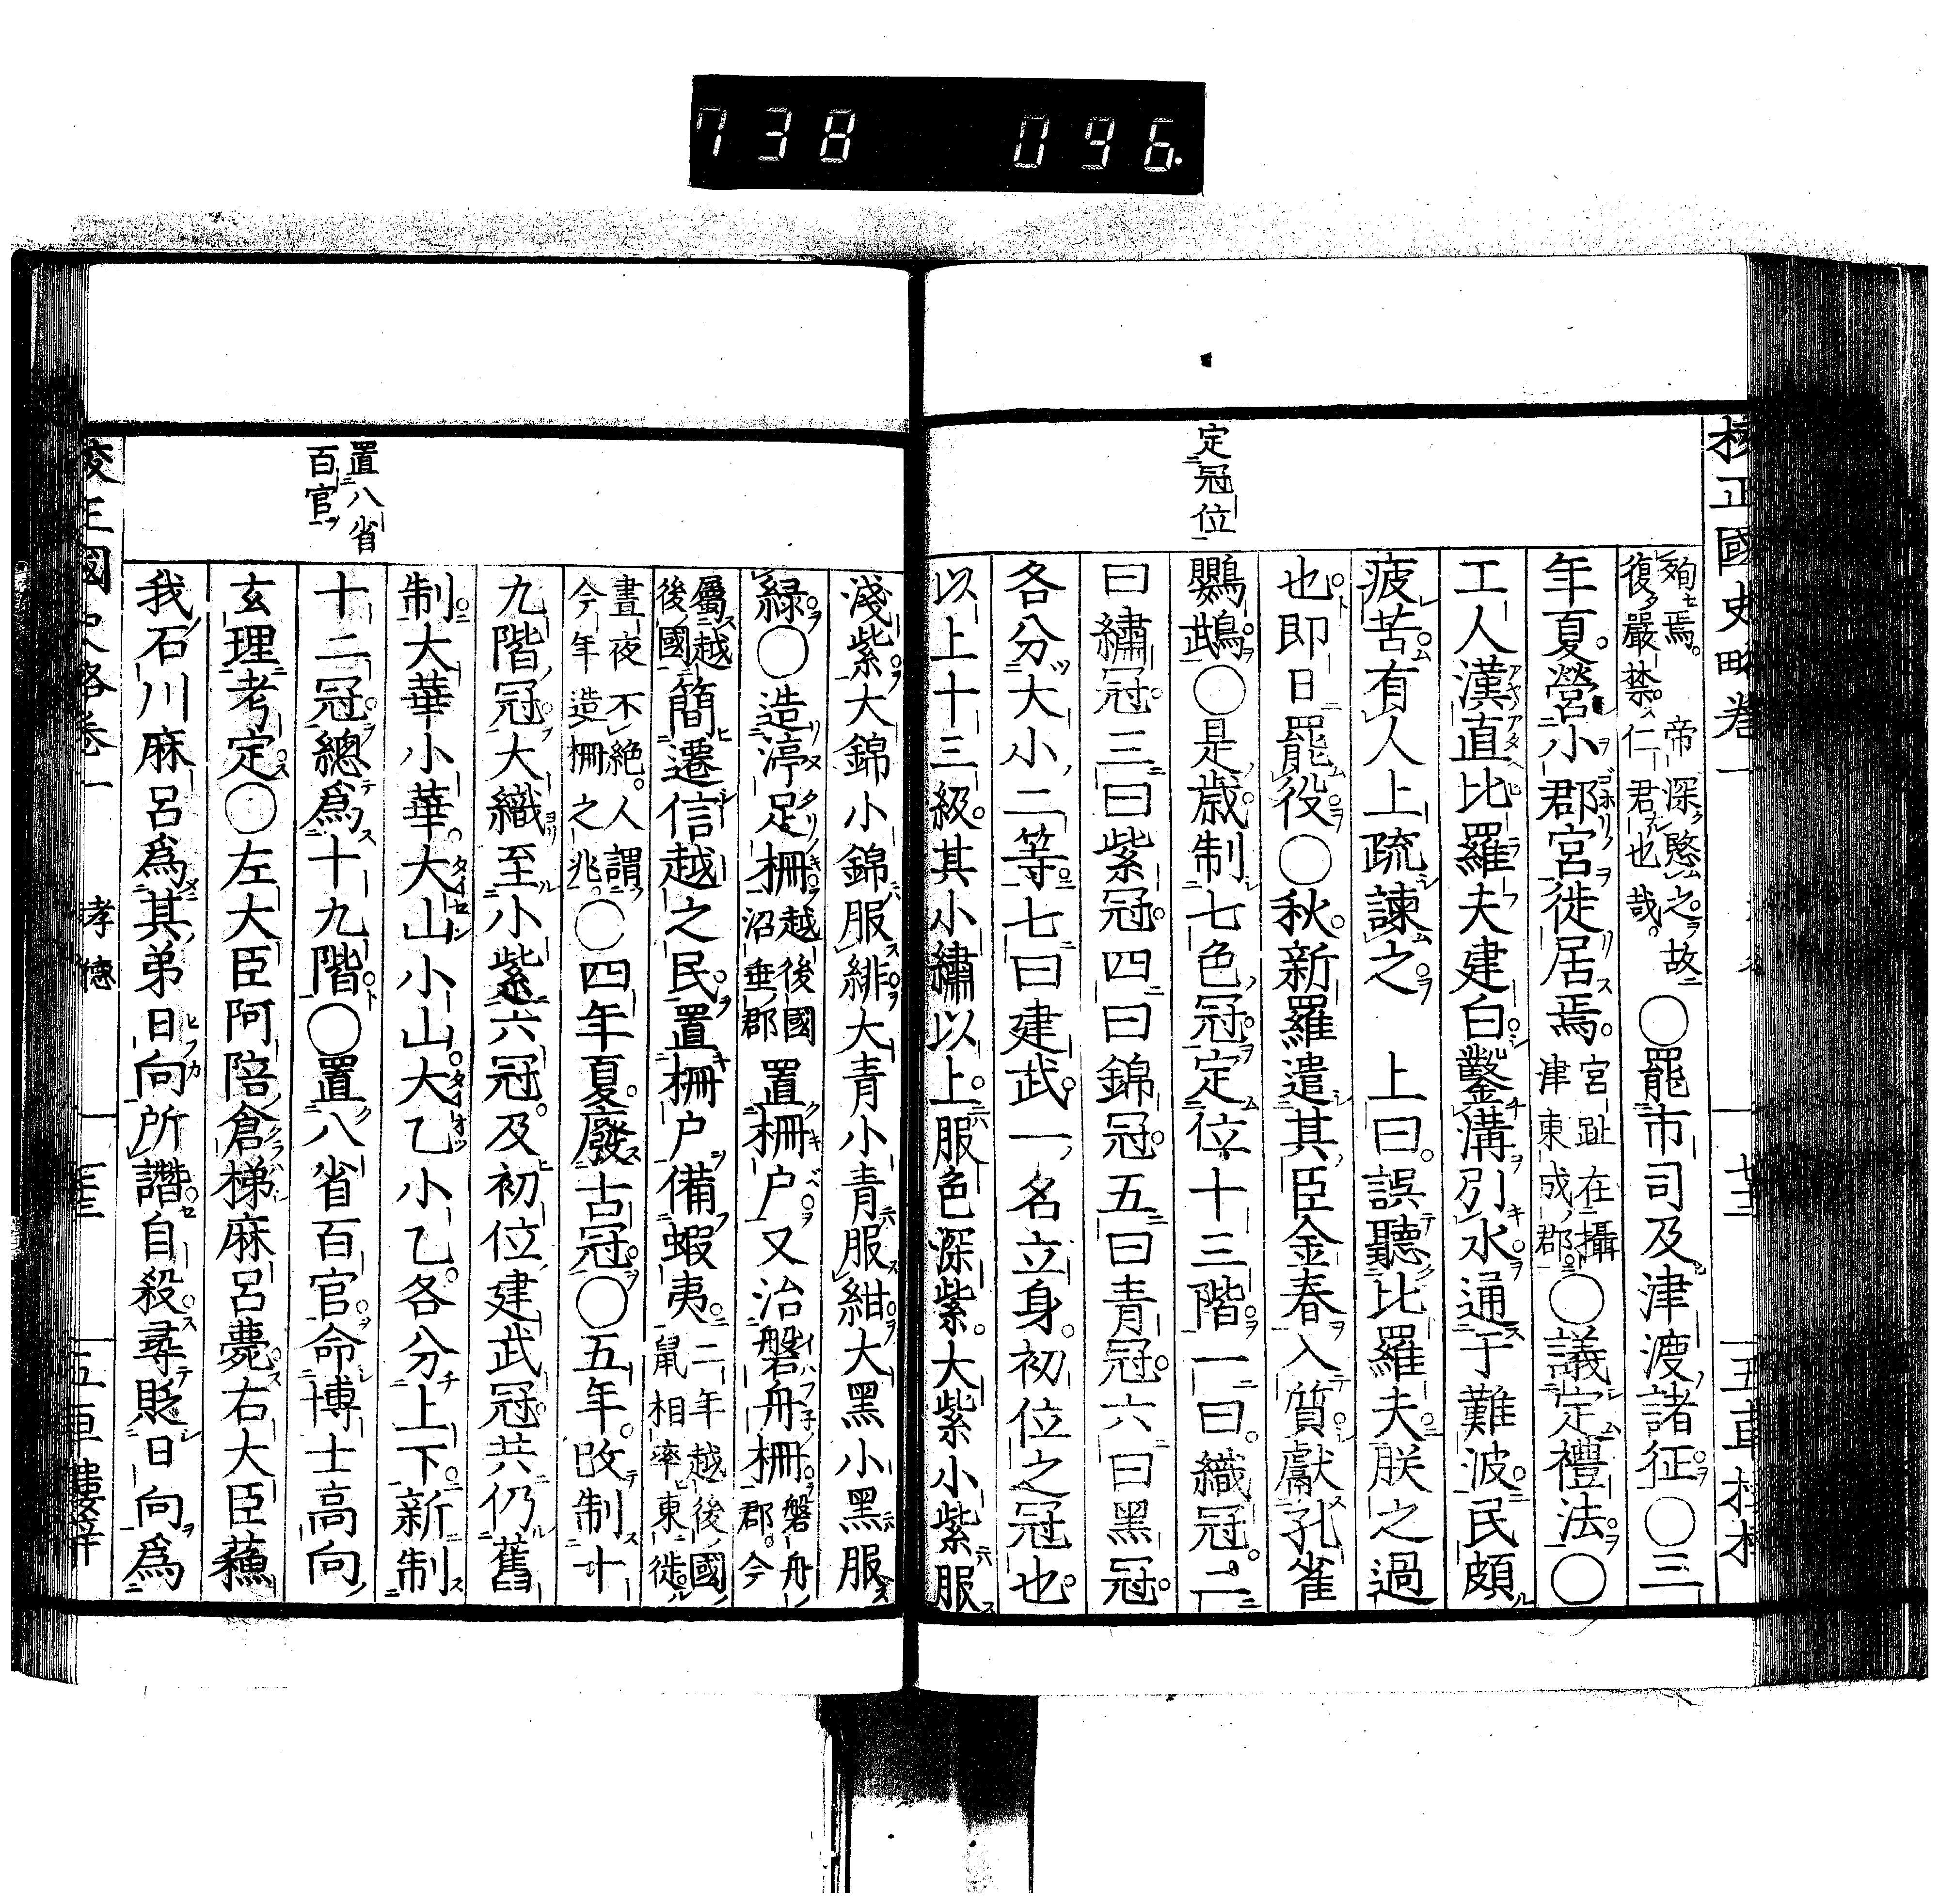 738 096.
校正國史略卷一
定冠位
殉焉。帝深愍之故
復嚴禁。仁君也哉。
○罷市司及津渡諸征○三
年夏。營小郡宮徙居焉。宮趾在攝津東成郡○議定禮法○
工人漢直比羅夫建白鑿溝引水通于難波民頗
疲苦有人上疏諫之 上曰。誤聽比羅夫朕之過
也即日罷役○秋新羅遣其臣金春入質獻孔雀
鸚鵡○是歳制七色冠定位十三階一曰織冠。二
曰繡冠。三曰紫冠。四曰錦冠。五曰青冠。六曰黑冠。
各分大小二等七曰建武。一名立身。初位之冠也。
以上十三級。其小繡以上。服色深紫。大紫小紫服
淺紫大錦小錦服緋大青小青服紺大黑小黑服
緑○造渟足柵越後國沼垂郡置柵戸又治磐舟柵磐舟郡。今
屬越後國簡遷信越之民置柵戸備蝦夷二年越後國鼠相率東徙
晝夜不絶。人謂今年造柵之兆。○四年夏。廢古冠○五年。改制十
九階冠大織至小紫六冠。及初位建武冠共仍舊
制大華小華。大山小山。大乙小乙。各分上下新制
十二冠總爲十九階○置八省百官命博士高向
玄理考定○左大臣阿陪倉梯麻呂薨右大臣蘓
我石川麻呂爲其弟日向所譖自殺尋貶日向爲
置八省
百官
孝德